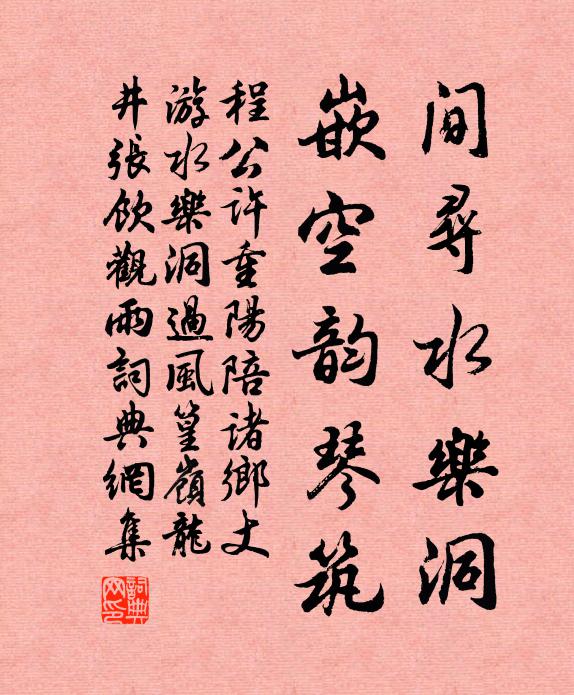 間尋水樂洞
嵌空韵琴筑
程公許重陽陪諸鄉丈
游水樂洞過風篁嶺龍
井張飲觀雨詞典網集